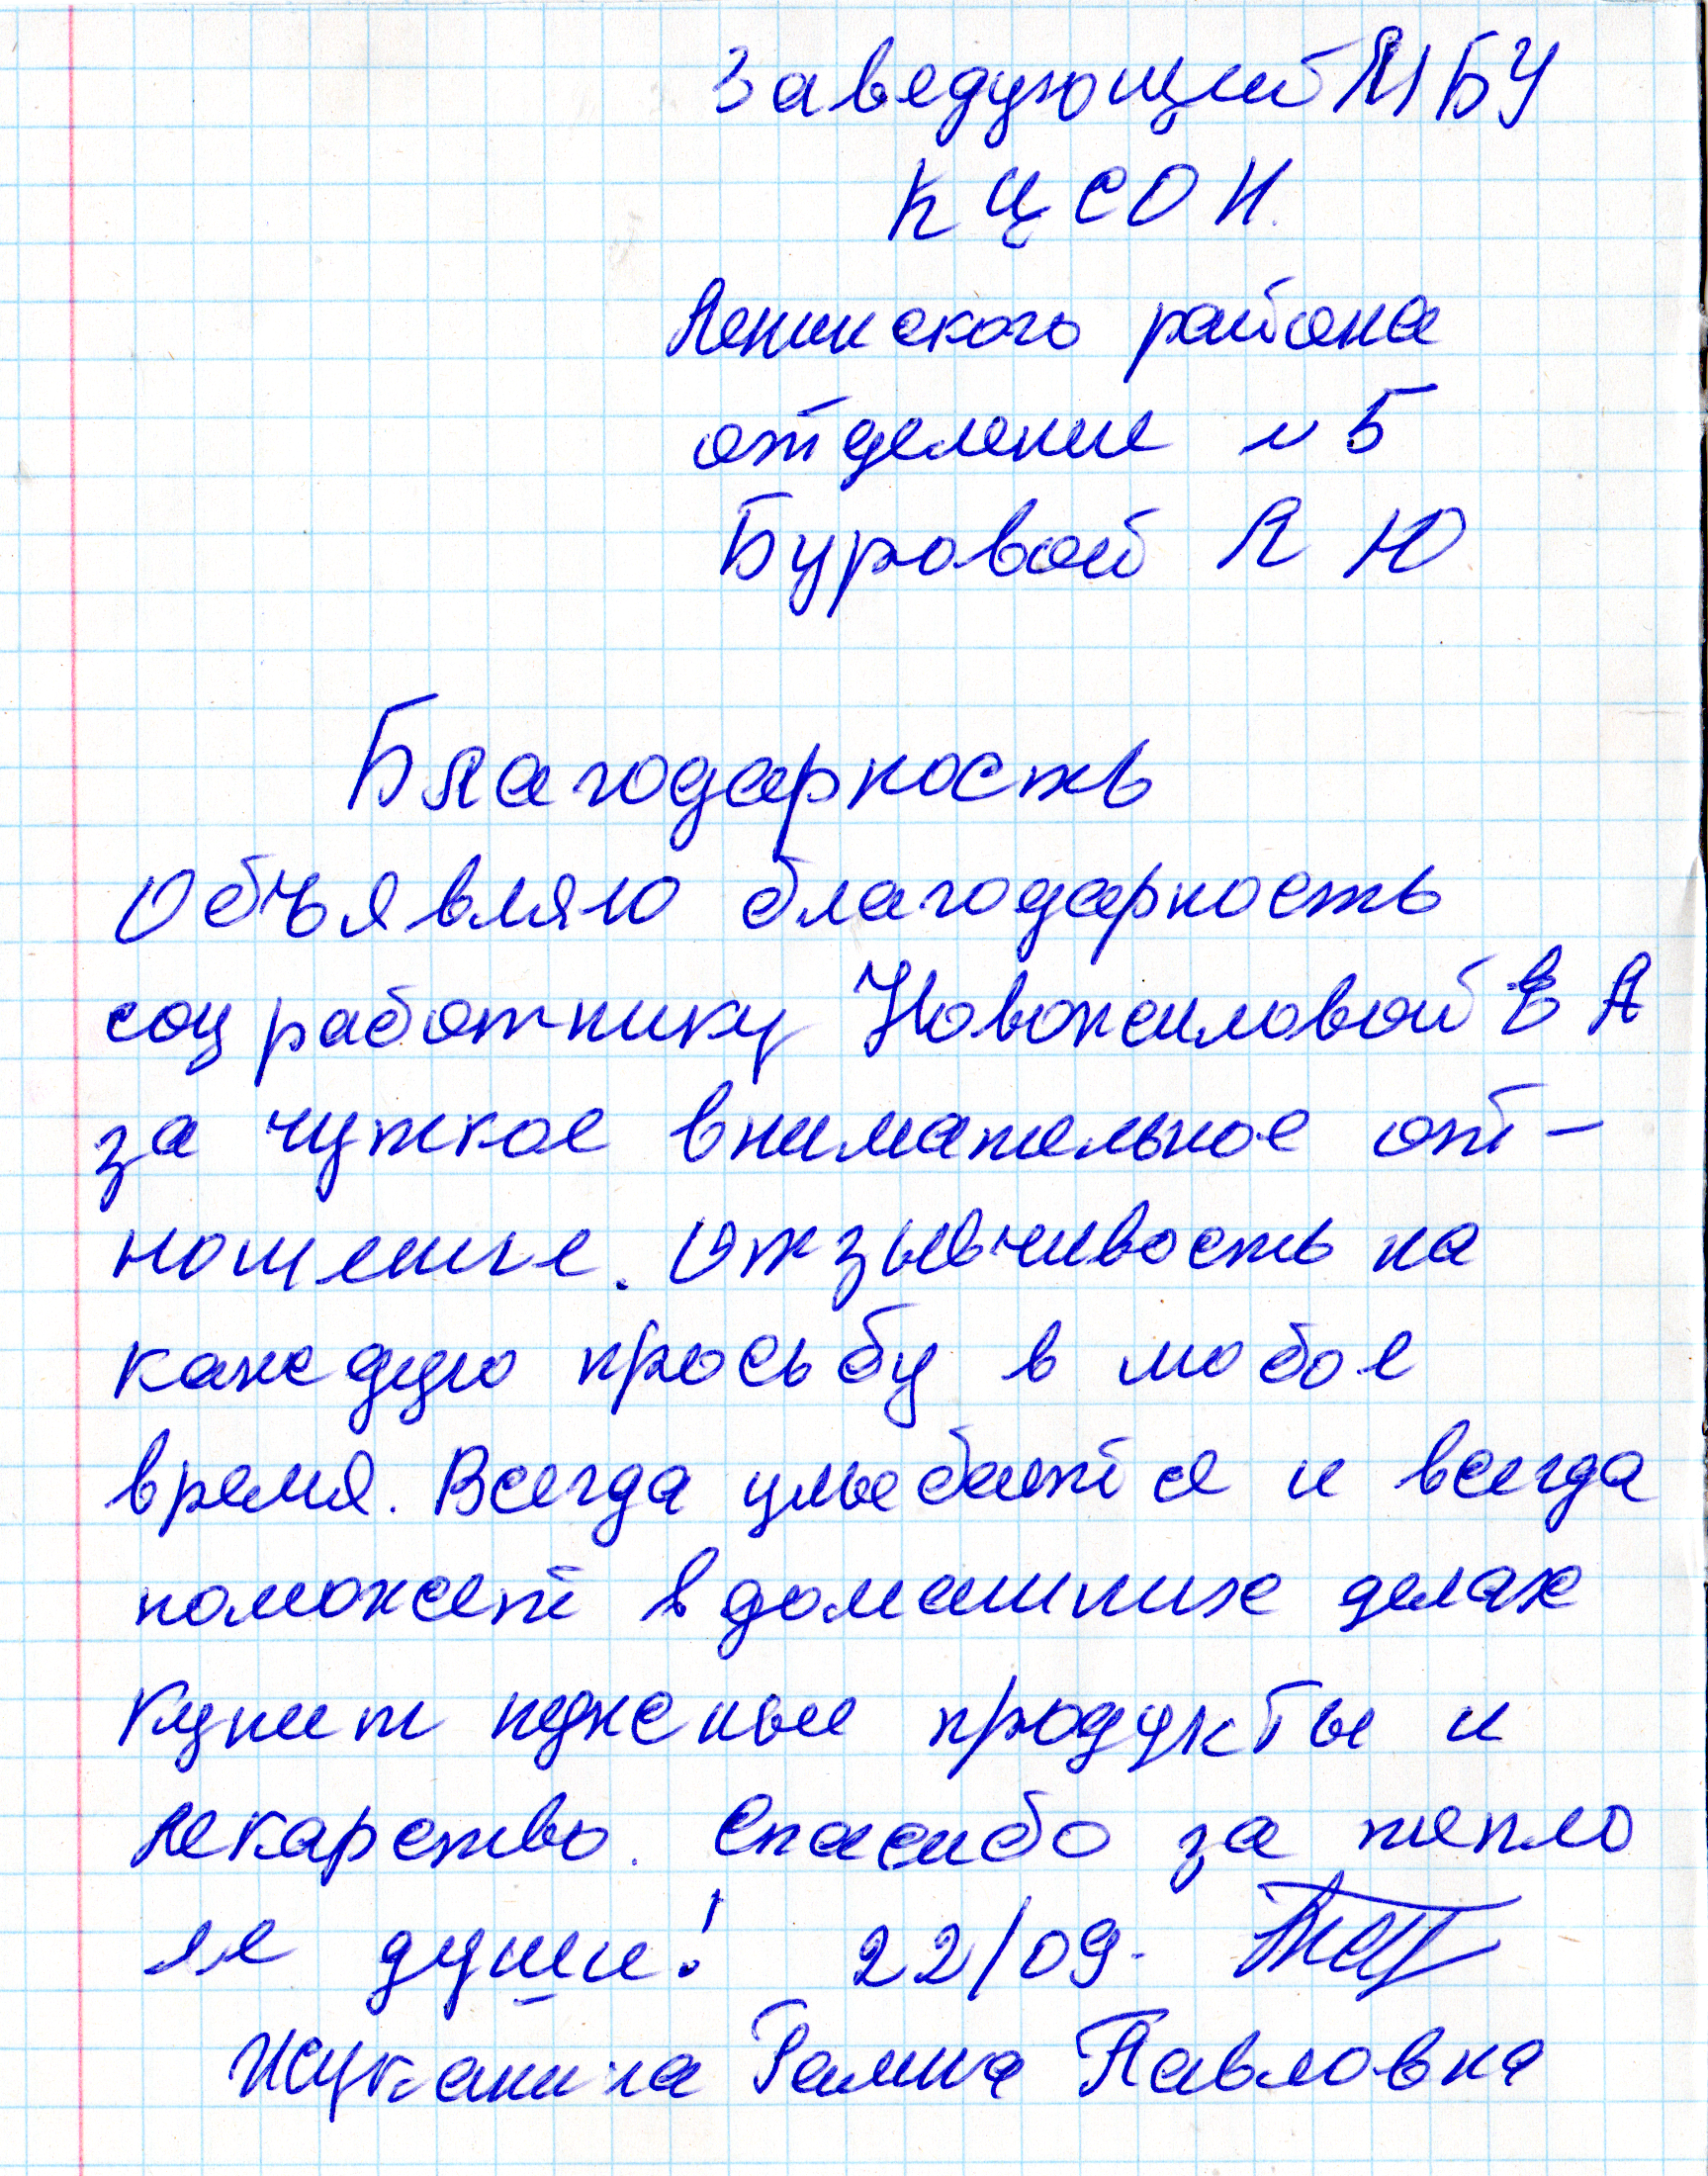 Заведующий МБУ
КЦСОН
Ленинского района
отделение N 5
Буровой Л Ю
Благодарность
Объявляю благодарность
соц работнику Новожиловой Е А
за чуткое внимательное от-
ношение. Отзывчивость на
каждую просьбу в любое
время. Всегда улыбается и всегда
поможет в домашних делах
купит нужные продукты и
лекарство. Спасибо за тепло
ее души! 22/09.
Жуканина Галина Павловна